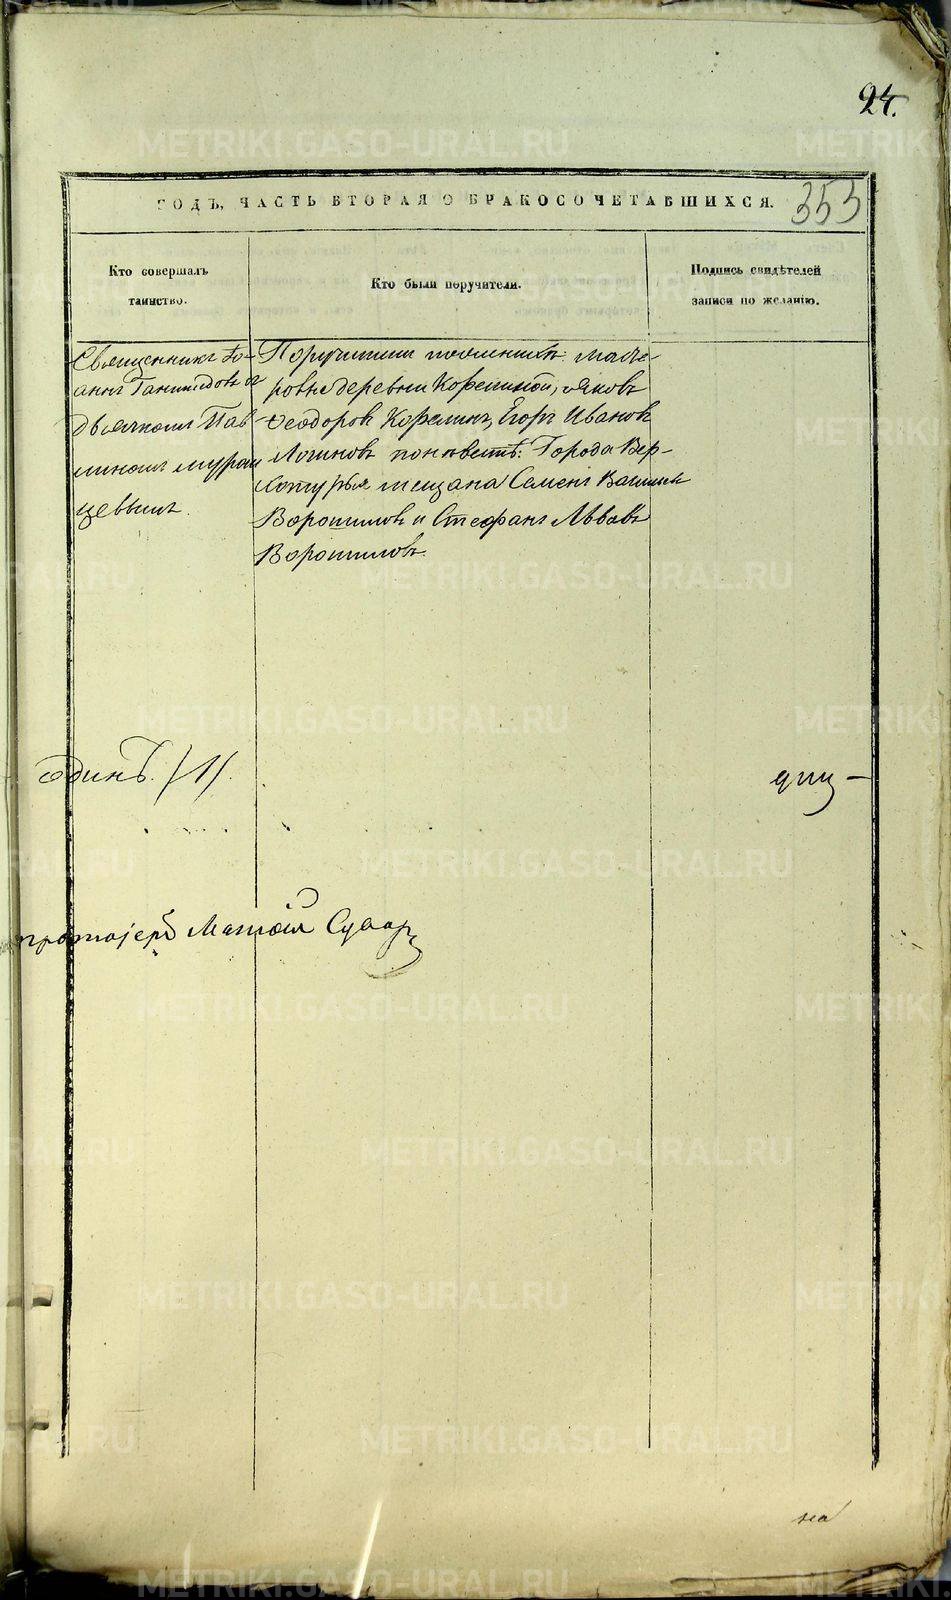 24.
353
ГОДЪ, ЧАСТЬ ВТОРАЯ О БРАКОСОЧЕТАВШИХСЯ.
Кто совершалъ
таинство.
Кто были поручители.
Подпись свидѣтелей
записи по желанію.
Священникъ Іо-
аннъ Ганимедовъ съ
дьячкомъ Пав
линомъ
цевымъ.
Поручители по женихѣ:
деревни Корелиной, Яковъ
Ѳеодоровъ Корелинъ, Егоръ Ивановъ
Логиновъ по невестѣ: Города Вер-
хотурья мещана Семенъ
Ворошиловъ и Стефанъ Львовъ
Ворошиловъ.
одинъ. /1/.
протоіерей
на
METRIKI.GASO-URAL.RU